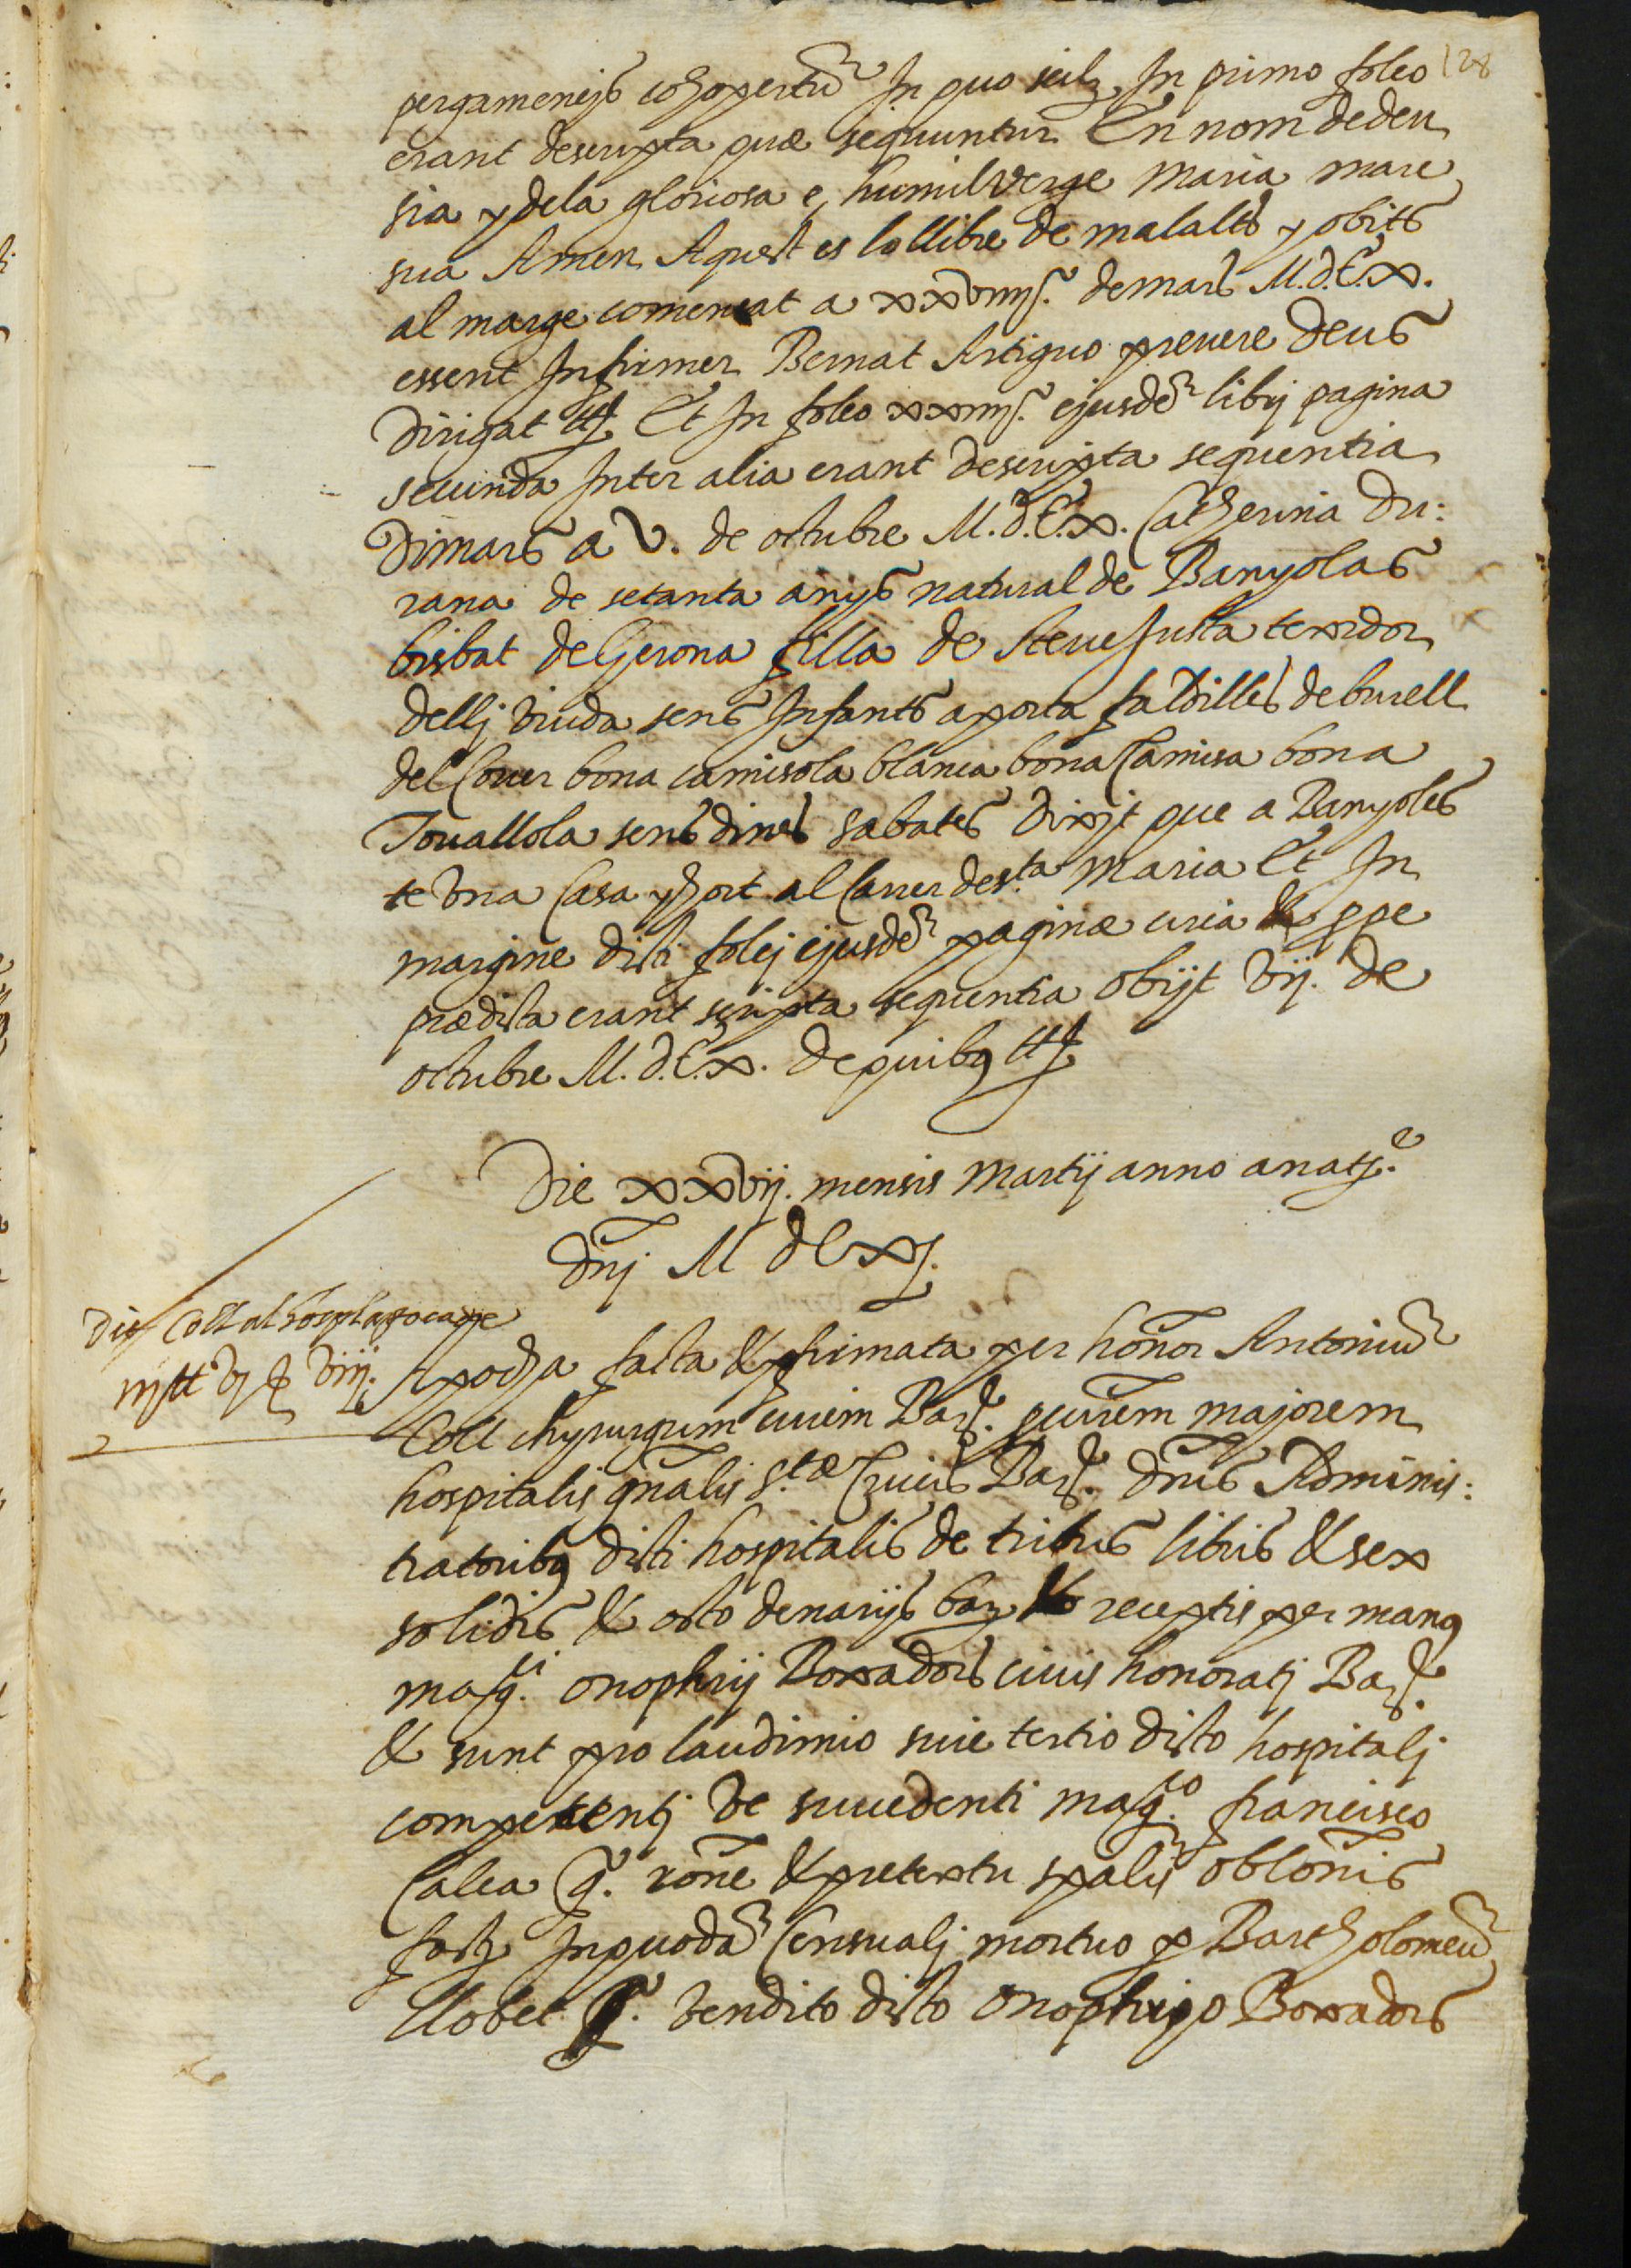 128
pergameneis cohopertũ In quo scilz. In primo foleo
erant descripta quæ sequuntur En nom de deu
sia y dela gloriosa e, humil Verge Maria mare
sua Amen Aquest es lo llibre de malalts y obits
al marge comensat a xxviiij. de mars M.d.C.x.
essent Infirmer Bernat Artiguo preuere Deus
Dirigat ett. Et In foleo xxiiij. ejusdẽ librj pagina
secunda Inter alia erant descripta sequentia
Dimars a V. de octubre M.d.C.x. Catherina Du:
rana de setanta anys natural de Banyolas
bisbat de Gerona filla de Steue Justa texidor
dellj viuda sens Infants aporta faldilles de burell
del Couer bona camisola blanca bona Camisa bona
Touallola sens dines sabates Dixjt que a Banyoles
te vna Casa y hort al Carrer de s.ta Maria Et In
margine dicti folej ejusdẽ paginæ circa spe
prædicta erant scripta sequentia obijt vij. de
octubre M.d.C.x. de quibq ett.
Die xxvij. mensis Martij anno a natj.e
dnj M dC xj.
Die Coll al hospl apocape
iij tt vj ß viij.
Apocha facta & firmata per honor Antoniũ
Coll chyrurgum ciuem Barẽ. procurem majorem
hospitalis gnalis S.tæ Crucis Barẽ. dnis Adminis:
tratoribq dicti hospitalis de tribus libris & sex
solidis & octo denarijs barz receptis per manq
mag.ci Onophrij Boxadors ciuis honoratj Barẽ.
& sunt pro laudimio siue tertio dicto hospitalj
compettentj de succedenti mag.co francisco
Calca q.º rõne & pretextu spalis oblonis
factz In quodã Censualj mortuo p Bartholomeũ
Llobet q.º vendito dicto Onophrigo Boxadors